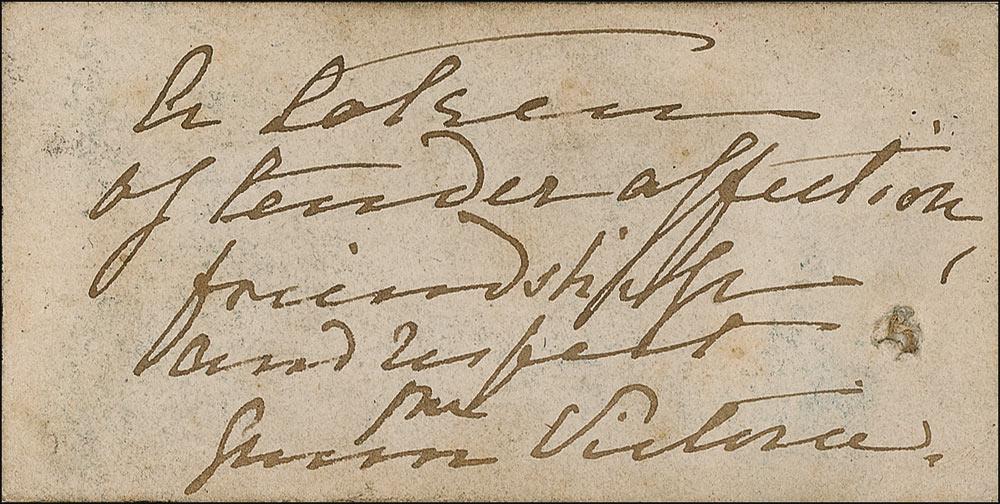 A token
of tender affection,
friendship
and respect
from
Queen Victoria.